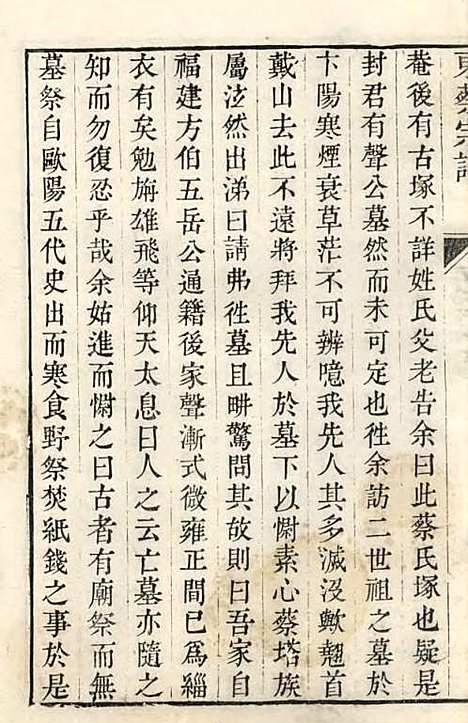 東蔡宗譜
菴後有古塚不詳姓氏父老告余曰此蔡氏塚也疑是
封君有聲公墓然而未可定也徃余訪二世祖之墓於
卞陽寒煙衰草茫不可辨噫我先人其多滅沒歟翹首
戴山去此不遠將拜我先人於墓下以慰素心蔡塔族
屬泫然出涕曰請弗徃墓且畊驚問其故則曰吾家自
福建方伯五岳公通籍後家聲漸式微雍正間已為緇
衣有矣勉旃雄飛等仰天太息曰人之云亡墓亦隨之
知而勿復忍乎哉余姑進而慰之曰古者有廟祭而無
墓祭自歐陽五代史出而寒食野祭焚紙錢之事於是